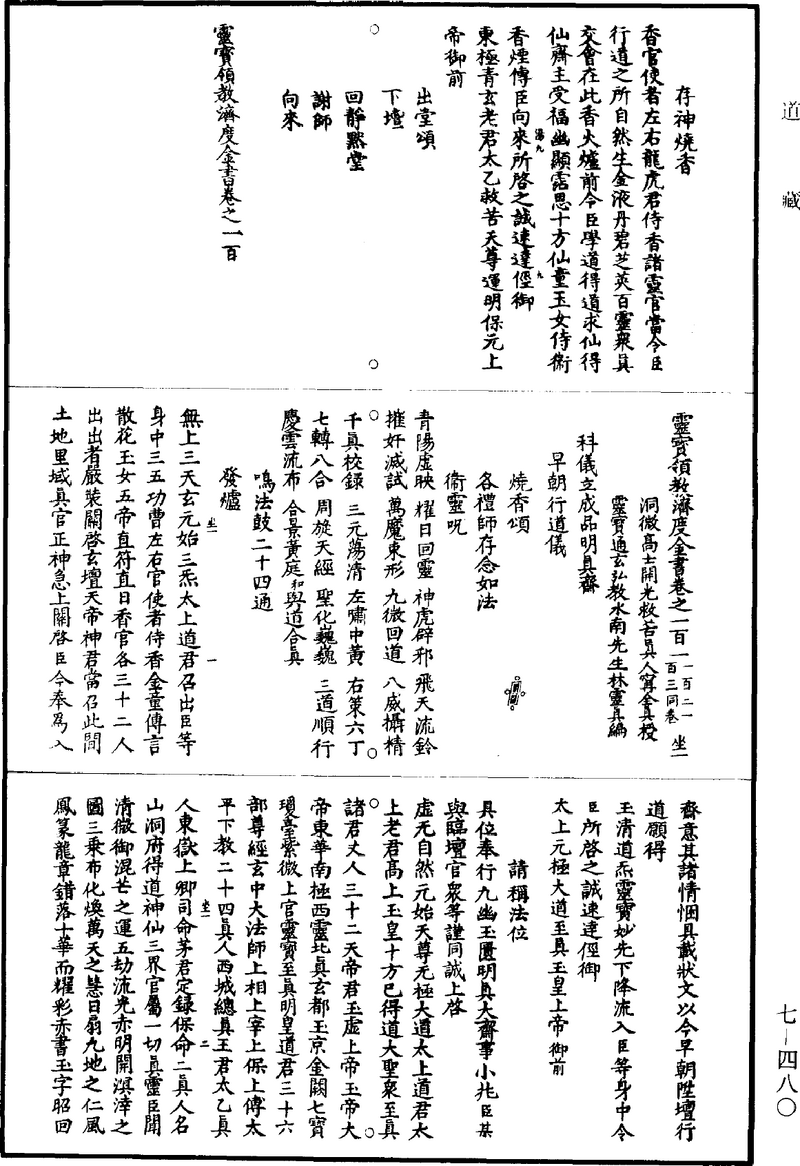 道藏
存神燒香
香官使者左右龍虎君侍香諸靈官當令臣
行道之所自然生金液丹碧芝英百靈衆眞
交會在此香火爐前令臣學道得道求仙得
仙齋主受福幽顯霑恩十方仙童玉女侍衛
香煙傳臣向來所啓之誠速達俓御
東極青玄老君太乙救苦天尊運明保元上
帝御前
出堂頌
下壇
回靜默堂
謝師
向來
靈寶領教濟度金書卷之一百
靈寶領教濟度金書卷之一百一 一百二一百三同卷 坐一
洞微高士開光救苦眞人甯全眞授
靈寶通玄弘教水南先生林靈眞編
科儀立成品明眞齋
早朝行道儀
燒香頌
各禮師存念如法
衛靈呪
青陽虛映 耀日回靈 神虎辟邪 飛天流鈴
摧奸滅試 萬魔束形 九微回道 八威攝精
千眞校錄 三元蕩清 左嘯中黃 右策六丁
七轉八合 周旋天經 聖化巍巍 三道順行
慶雲流布 合景黃庭 和與道合眞
鳴法鼓二十四通
發爐
無上三天玄元始三炁太上道君召出臣等
身中三五功曹左右官使者侍香金童傳言
散花玉女五帝直符直日香官各三十二人
出出者嚴裝關啓玄壇天帝神君當召此間
土地里域眞官正神急上關啓臣今奉爲入
齋意其諸情悃具載狀文以今早朝陞壇行
道願得
玉清道炁靈寶妙先下降流入臣等身中令
臣所啓之誠速達俓御
太上元極大道至眞玉皇上帝 御前
請稱法位
具位奉行九幽玉匱明眞大齋事小兆臣某
與臨壇官衆等謹同誠上啓
虛无自然元始天尊无極大道太上道君太
上老君高上玉皇十方已得道大聖衆至眞
諸君丈人三十二天帝君玉虛上帝玉帝大
帝東華南極西靈北眞玄都玉京金闕七寶
瓊臺紫微上宮靈寶至眞明皇道君三十六
部尊經玄中大法師上相上宰上保上傅太
平下教二十四眞人西城總眞王君太乙眞
人東嶽上卿司命茅君定錄保命二眞人名
山洞府得道神仙三界官屬一切眞靈臣聞
清微御混芒之運五劫流光赤明開溟涬之
圖三乘布化煥萬天之慧日扇九地之仁風
鳳篆龍章錯落十華而耀彩赤書玉字昭回
七—四八〇